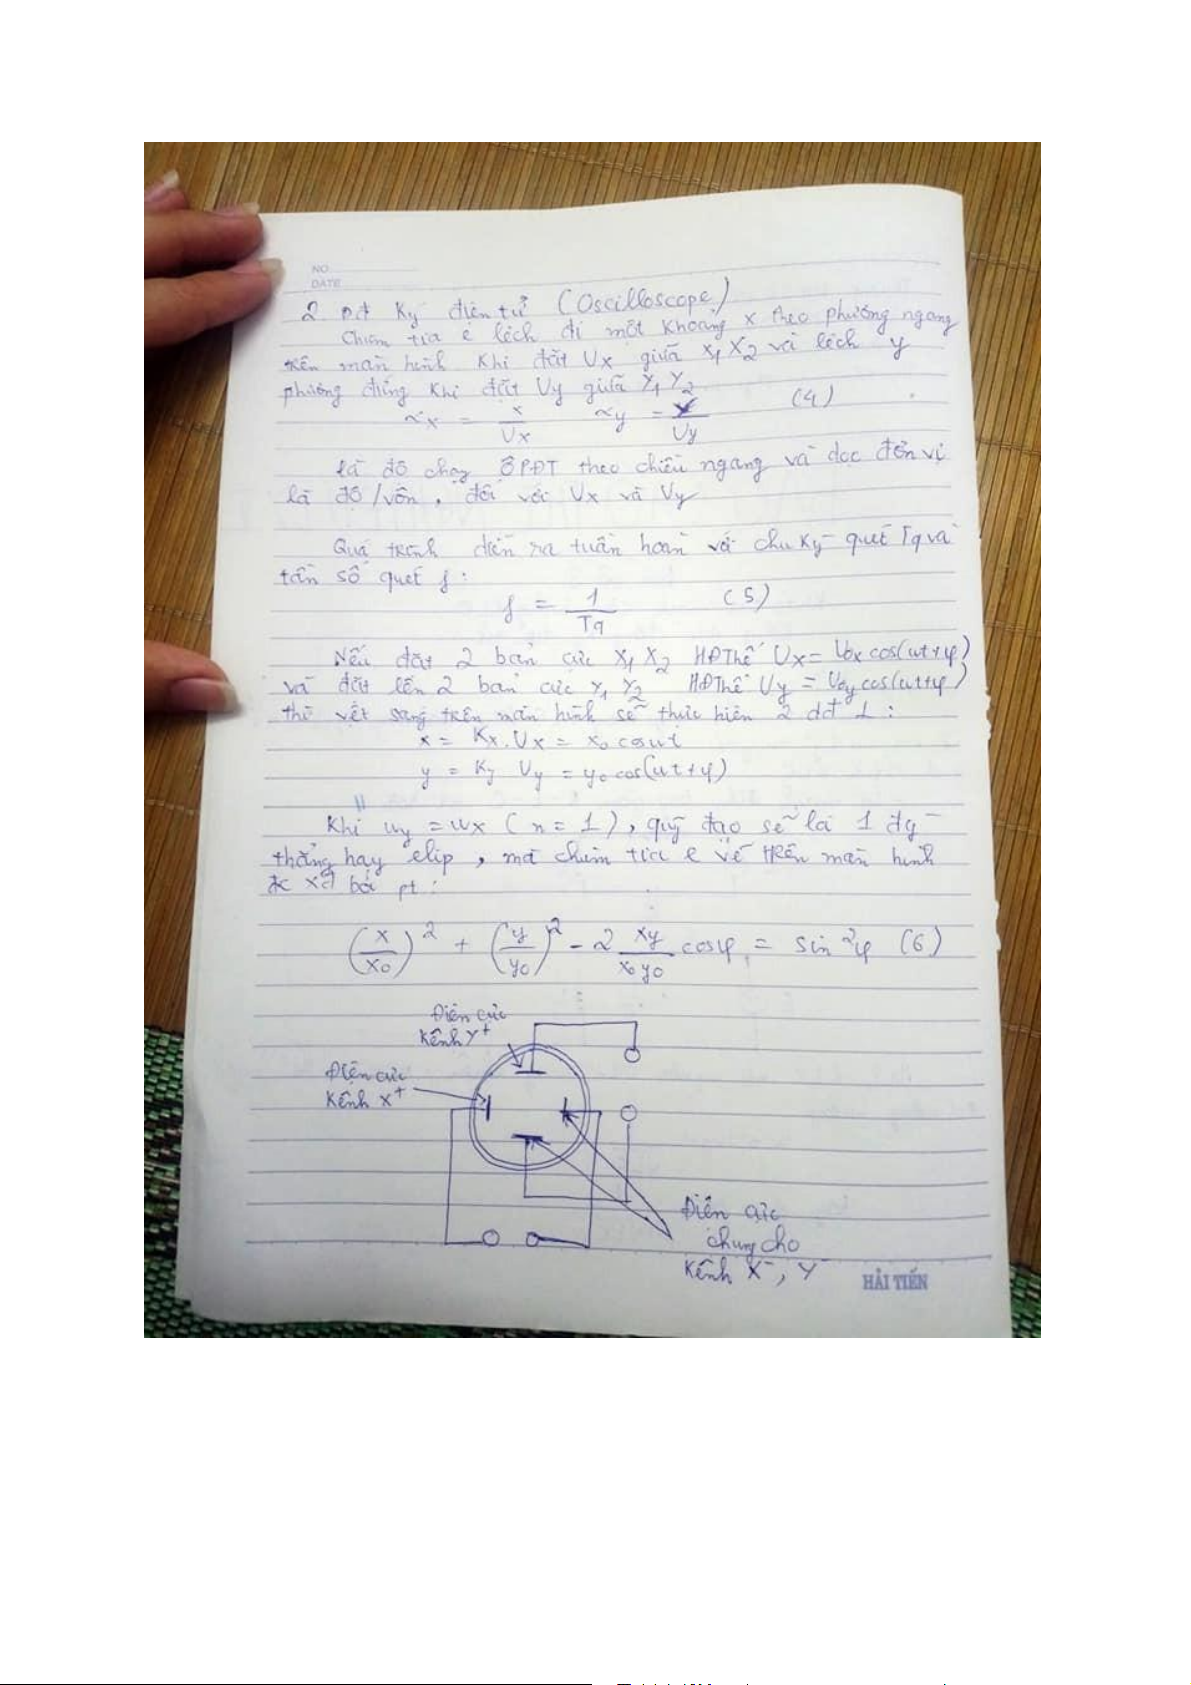 NO.
DATE
2 Dđ Ký điện tử (Oscilloscope)
Chùm tia e lệch đi một khoảng x theo phương ngang
trên màn hình khi đặt Ux giữa X1 X2 và lệch y
phương đứng khi đặt Uy giữa Y1 Y2
αx = x/Ux αy = y/Uy (4)
là độ nhạy ÔPĐT theo chiều ngang và dọc đơn vị
là độ/vôn, đối với Ux và Uy
Quá trình diễn ra tuần hoàn với chu kỳ quét Tq và
tần số quét f:
f = 1/Tq (5)
Nếu đặt 2 bản cực X1 X2 HĐThế Ux = Uox cos(ωt+φ)
và đặt lên 2 bản cực Y1 Y2 HĐThế Uy = Uoy cos(ωt+φ)
thì vệt sáng trên màn hình sẽ thực hiện 2 dđ ⊥ :
x = Kx.Ux = x0 cosωt
y = Ky Uy = y0 cos(ωt+φ)
Khi ωy = ωx (n = 1), quỹ đạo sẽ là 1 đg
thẳng hay elip, mà chùm tia e vẽ trên màn hình
đc xđ bởi pt:
(x/x0)² + (y/y0)² - 2 xy/x0y0 cosφ = sin²φ (6)
Điện cực
Kênh Y+
Điện cực
Kênh X+
Điện cực
chung cho
Kênh X-, Y-
HẢI TIẾN